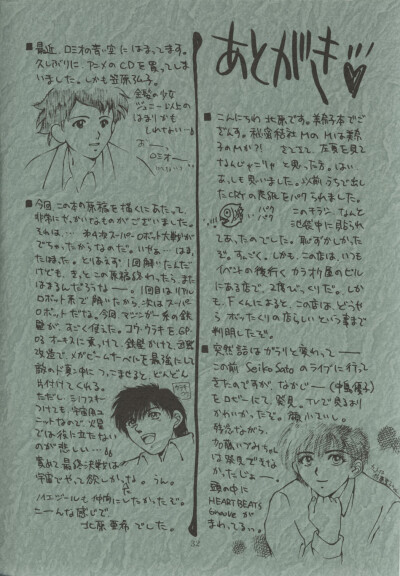 あとがき♥
■こんにちわ 北原です。美奈子本でご
ざんす。秘密結社MのMは美奈
子のMか?! さてさて、左頁を見て
なんじゃこりゃ と思った方。はい
あしも思いました。以前うちで出し
たCRYの表紙をパクられました。
パク パク
このチラシ、なんと
池袋中に貼られ
てあったのでした。恥ずかしかった
ぞ。すっごく。しかも、この店は、いつも
イベントの後行く カラオケ屋のビルに
ある店で、2度びっくりだ。しか
も、Fくんによると、この店は、どうやら
ぼったくりの店らしいという事まで
判明したぞ。
■突然話はがらりと変わって——
この前 Seiko Satoのライブに行って
きたのですが、なかじー(中島優子)
をロビーにて発見。TVで見るより
かわいかったぞ。顔小さいし。
残念ながら
加藤いづみちゃん
は発見できな
かったじょー。
頭の中に
HEARTBEATS
Grooveが
まわってるぅ。
■最近、ロミオの青い空にはまってます。
久しぶりに アニメのCDを買ってしま
いました。しかも笠原弘子。
ジョニー以上の
はまりかも
しれない…
おー、
ロミオー
■今回、この本の原稿を描くにあたって
非常にやっかいなものがございました。
それは… 第4次スーパーロボット大戦が
でちゃったからなのだ。いやぁ——はま
たはまた。とりあえず1回解いたんだ
けども、きっとこの原稿終わったら、また
はまるんだろうなー。1回目はリアル
ロボット系で解いたから、次はスーパー
ロボットだな。今回、マジンガー系の鉄
壁が、すごく使えた。コウ・ウラキをGP-
03オーキスに乗っけて、鉄壁かけて
改造で、メガビームサーベルを最強にして
敵のド真ん中につっこませると、どんどん
片付けてくれる。
ただし
つけても 宇宙用ユ
ニットなので 火星
では役に立たない
のが悲しい…
最終決戦は
宇宙でやって欲しかったな。うん。
ハイエンドールも仲間にしたかったぞ。
てーな感じで
北原亜希でした。
32